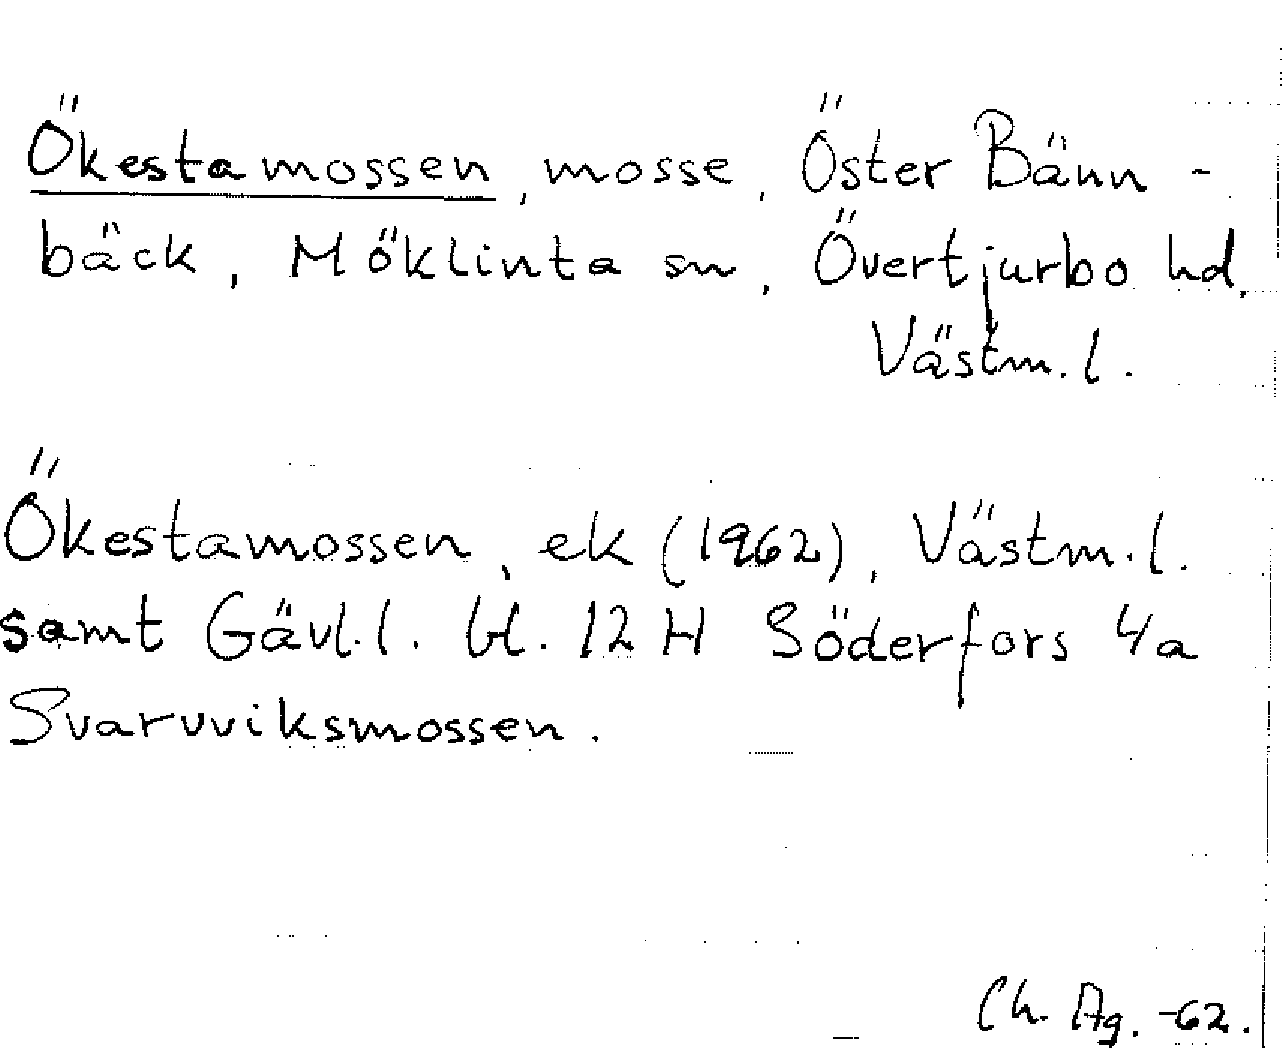 Ökestamossen, mosse, Öster Bänn-
bäck, Möklinta sn, Övertjurbo hd,
Västm. l.
Ökestamossen, ek (1962), Västm. l.
samt Gävl. l. bl. 12 H Söderfors 4a
Svarvviksmossen.
Ch. Ag. -62.